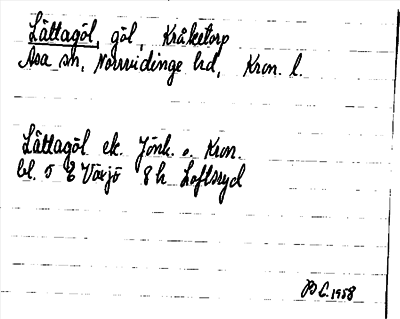 Låttagöl, göl, Kråketorp
Asa sn, Norrvidinge hd, Kron. l.
Låttagöl ek. Jönk. o. Kron.
bl. 5 E Växjö 8 h Loftsryd
B C. 1958